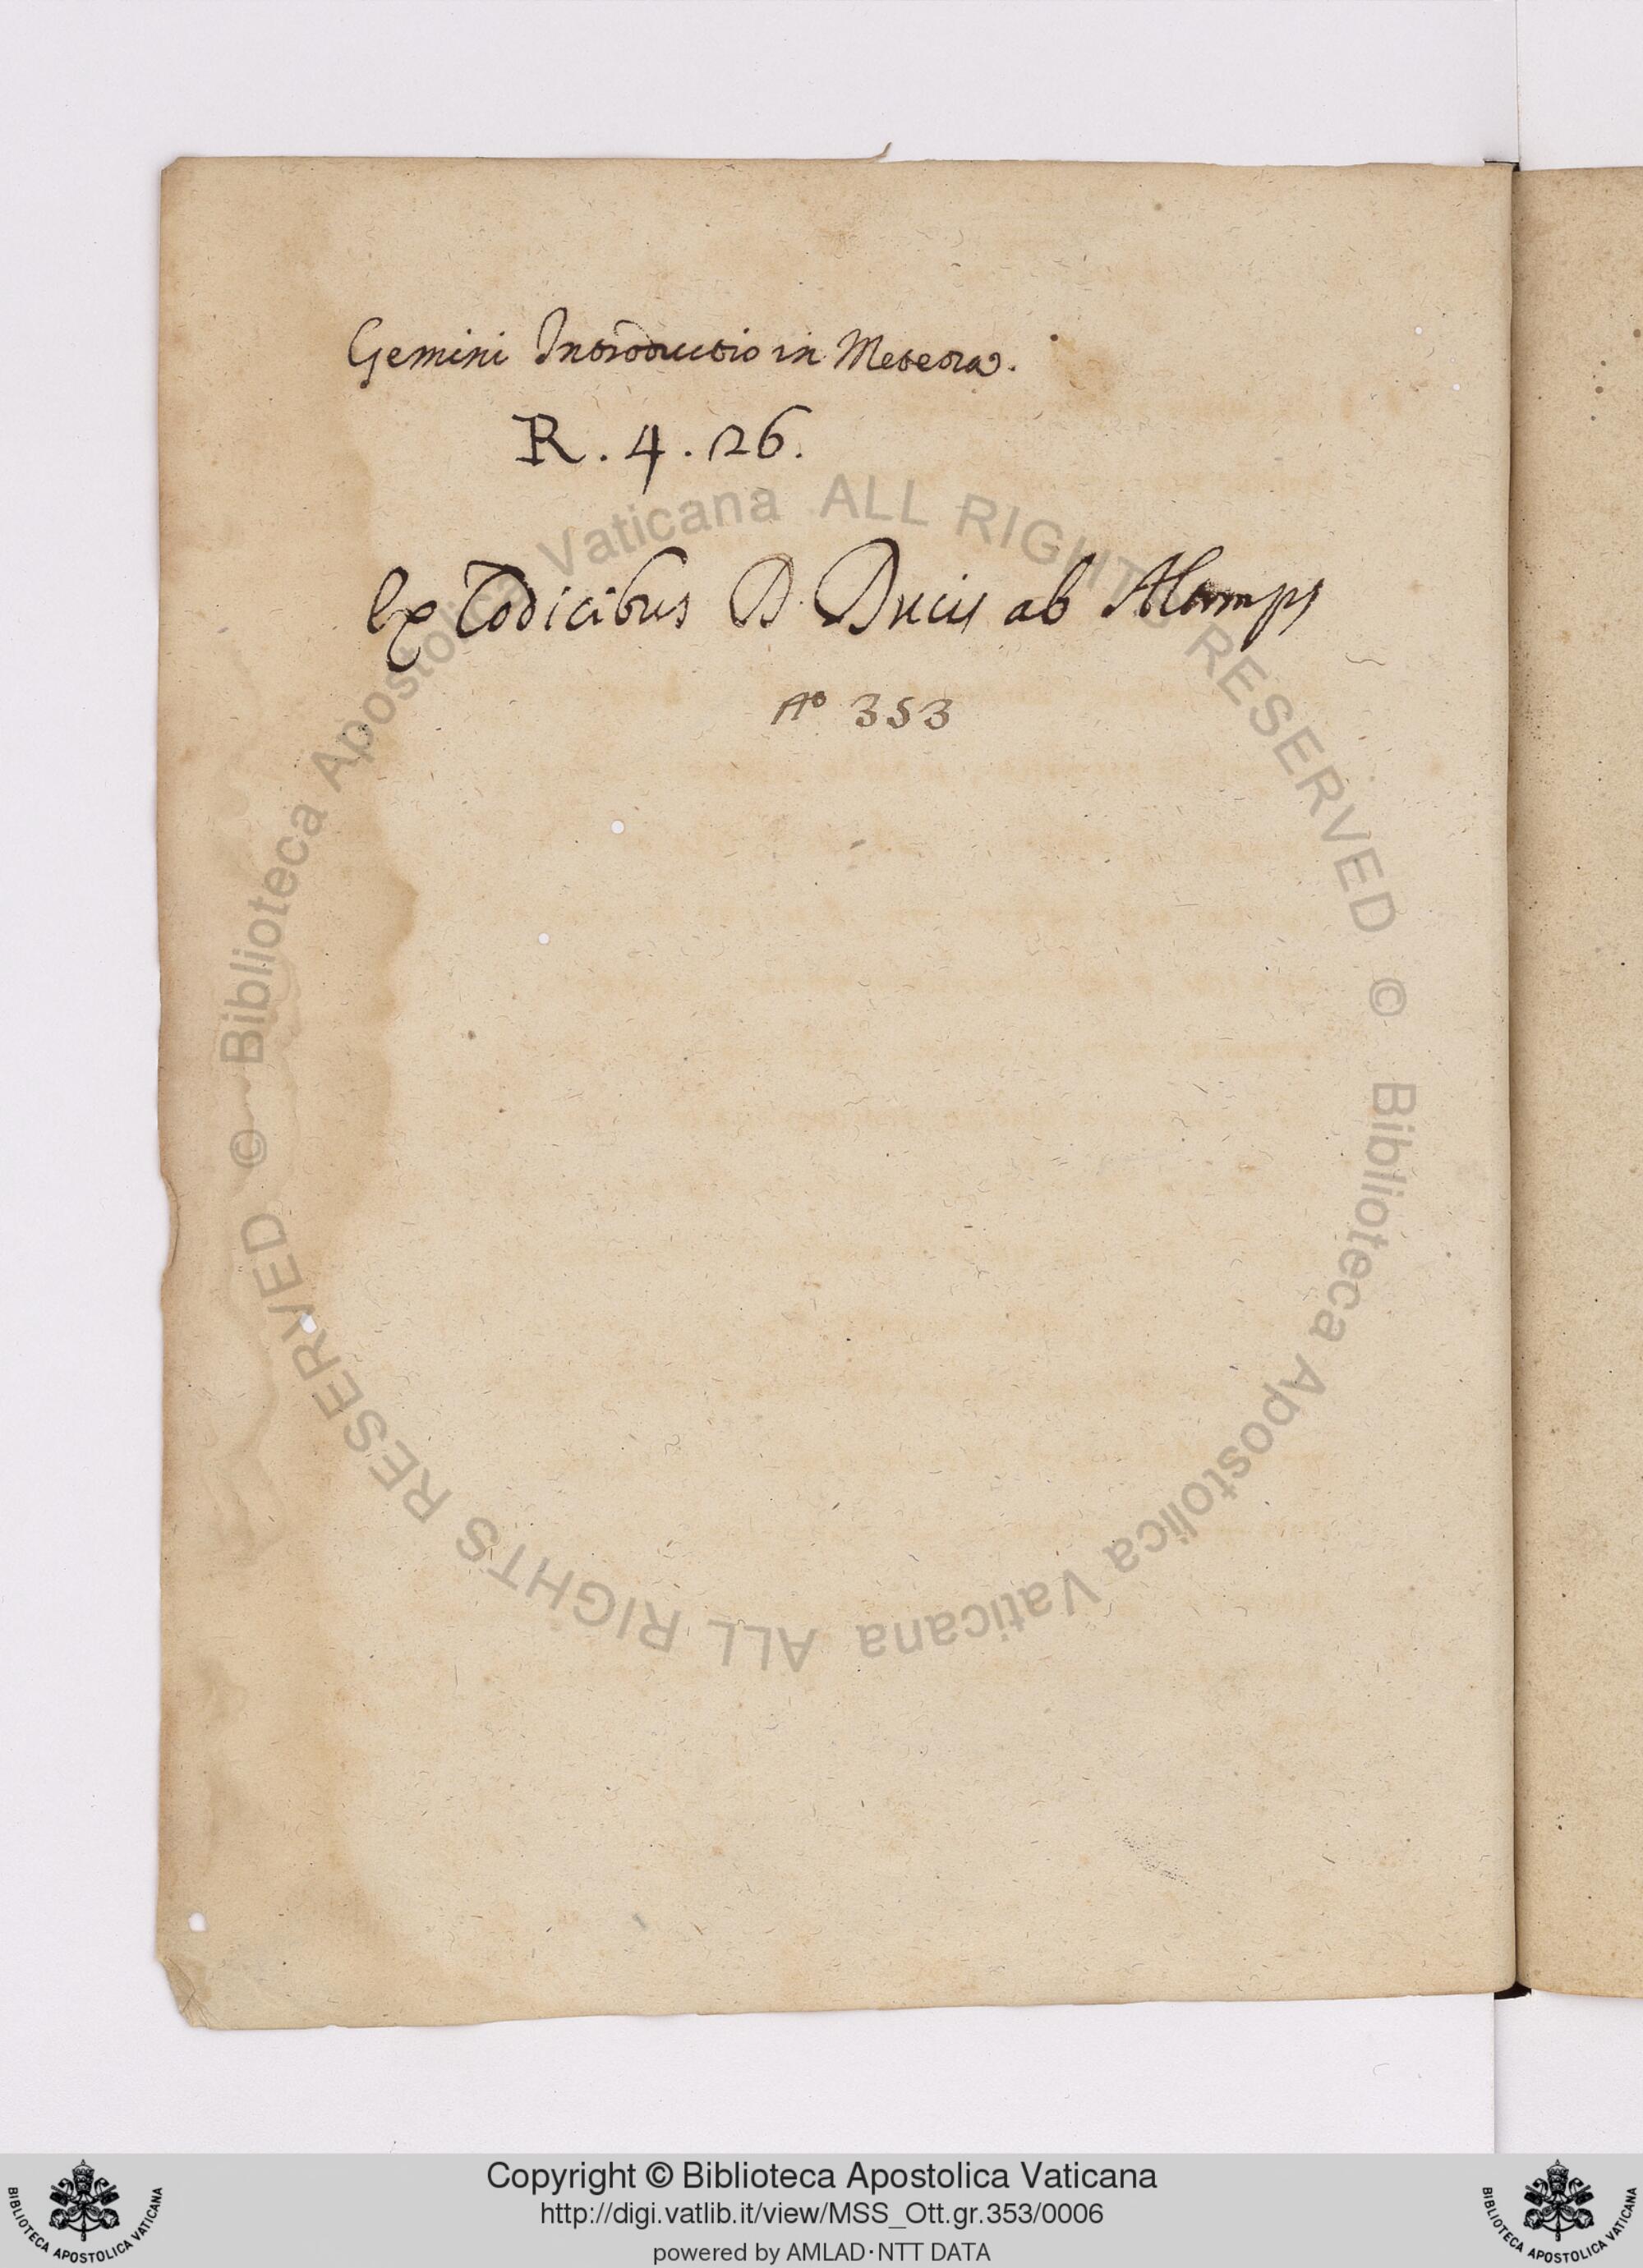 Gemini Introductio in Meteora.
R. 4. 26.
Ex Codicibus D. Ducis ab Altemps
Aº 353
© Biblioteca Apostolica Vaticana ALL RIGHTS RESERVED
© Biblioteca Apostolica Vaticana ALL RIGHTS RESERVED
Copyright © Biblioteca Apostolica Vaticana
http://digi.vatlib.it/view/MSS_Ott.gr.353/0006
powered by AMLAD·NTT DATA
BIBLIOTECA APOSTOLICA VATICANA
BIBLIOTECA APOSTOLICA VATICANA